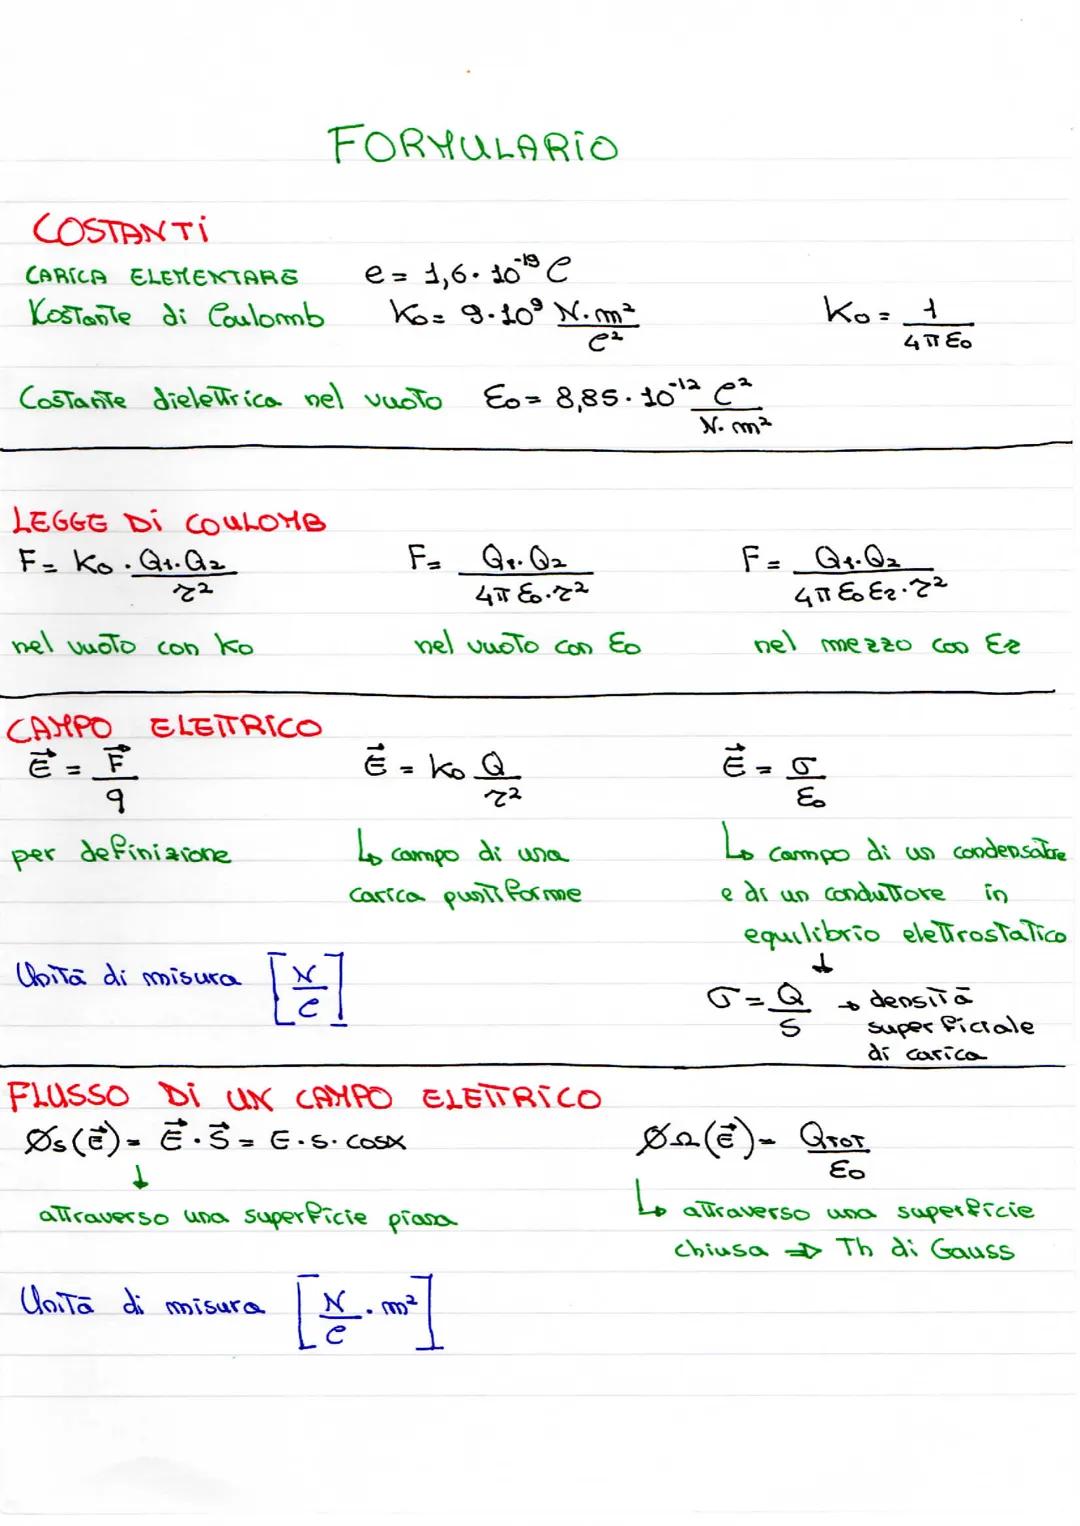 FORMULARIO
COSTANTI
CARICA ELEMENTARE e = 1,6 · 10⁻¹⁹ C
Kostante di Coulomb K₀ = 9 · 10⁹ N · m² / C² K₀ = 1 / 4πε₀
Costante dielettrica nel vuoto ε₀ = 8,85 · 10⁻¹² C² / N · m²
LEGGE DI COULOMB
F = K₀ · Q₁ · Q₂ / r² F = Q₁ · Q₂ / 4πε₀ · r² F = Q₁ · Q₂ / 4πε₀εr · r²
nel vuoto con K₀ nel vuoto con ε₀ nel mezzo con εr
CAMPO ELETTRICO
E⃗ = F⃗ / q E⃗ = K₀ Q / r² E⃗ = σ / ε₀
per definizione ↳ campo di una ↳ campo di un condensatore
carica puntiforme e di un conduttore in
equilibrio elettrostatico
↓
Unità di misura [N / C] σ = Q / S → densità
superficiale
di carica
FLUSSO DI UN CAMPO ELETTRICO
Øs(E⃗) = E⃗ · S⃗ = E · S · cosα ØΩ(E⃗) = QTOT / ε₀
↓
attraverso una superficie piana ↳ attraverso una superficie
chiusa ⇒ Th di Gauss
Unità di misura [N / C · m²]